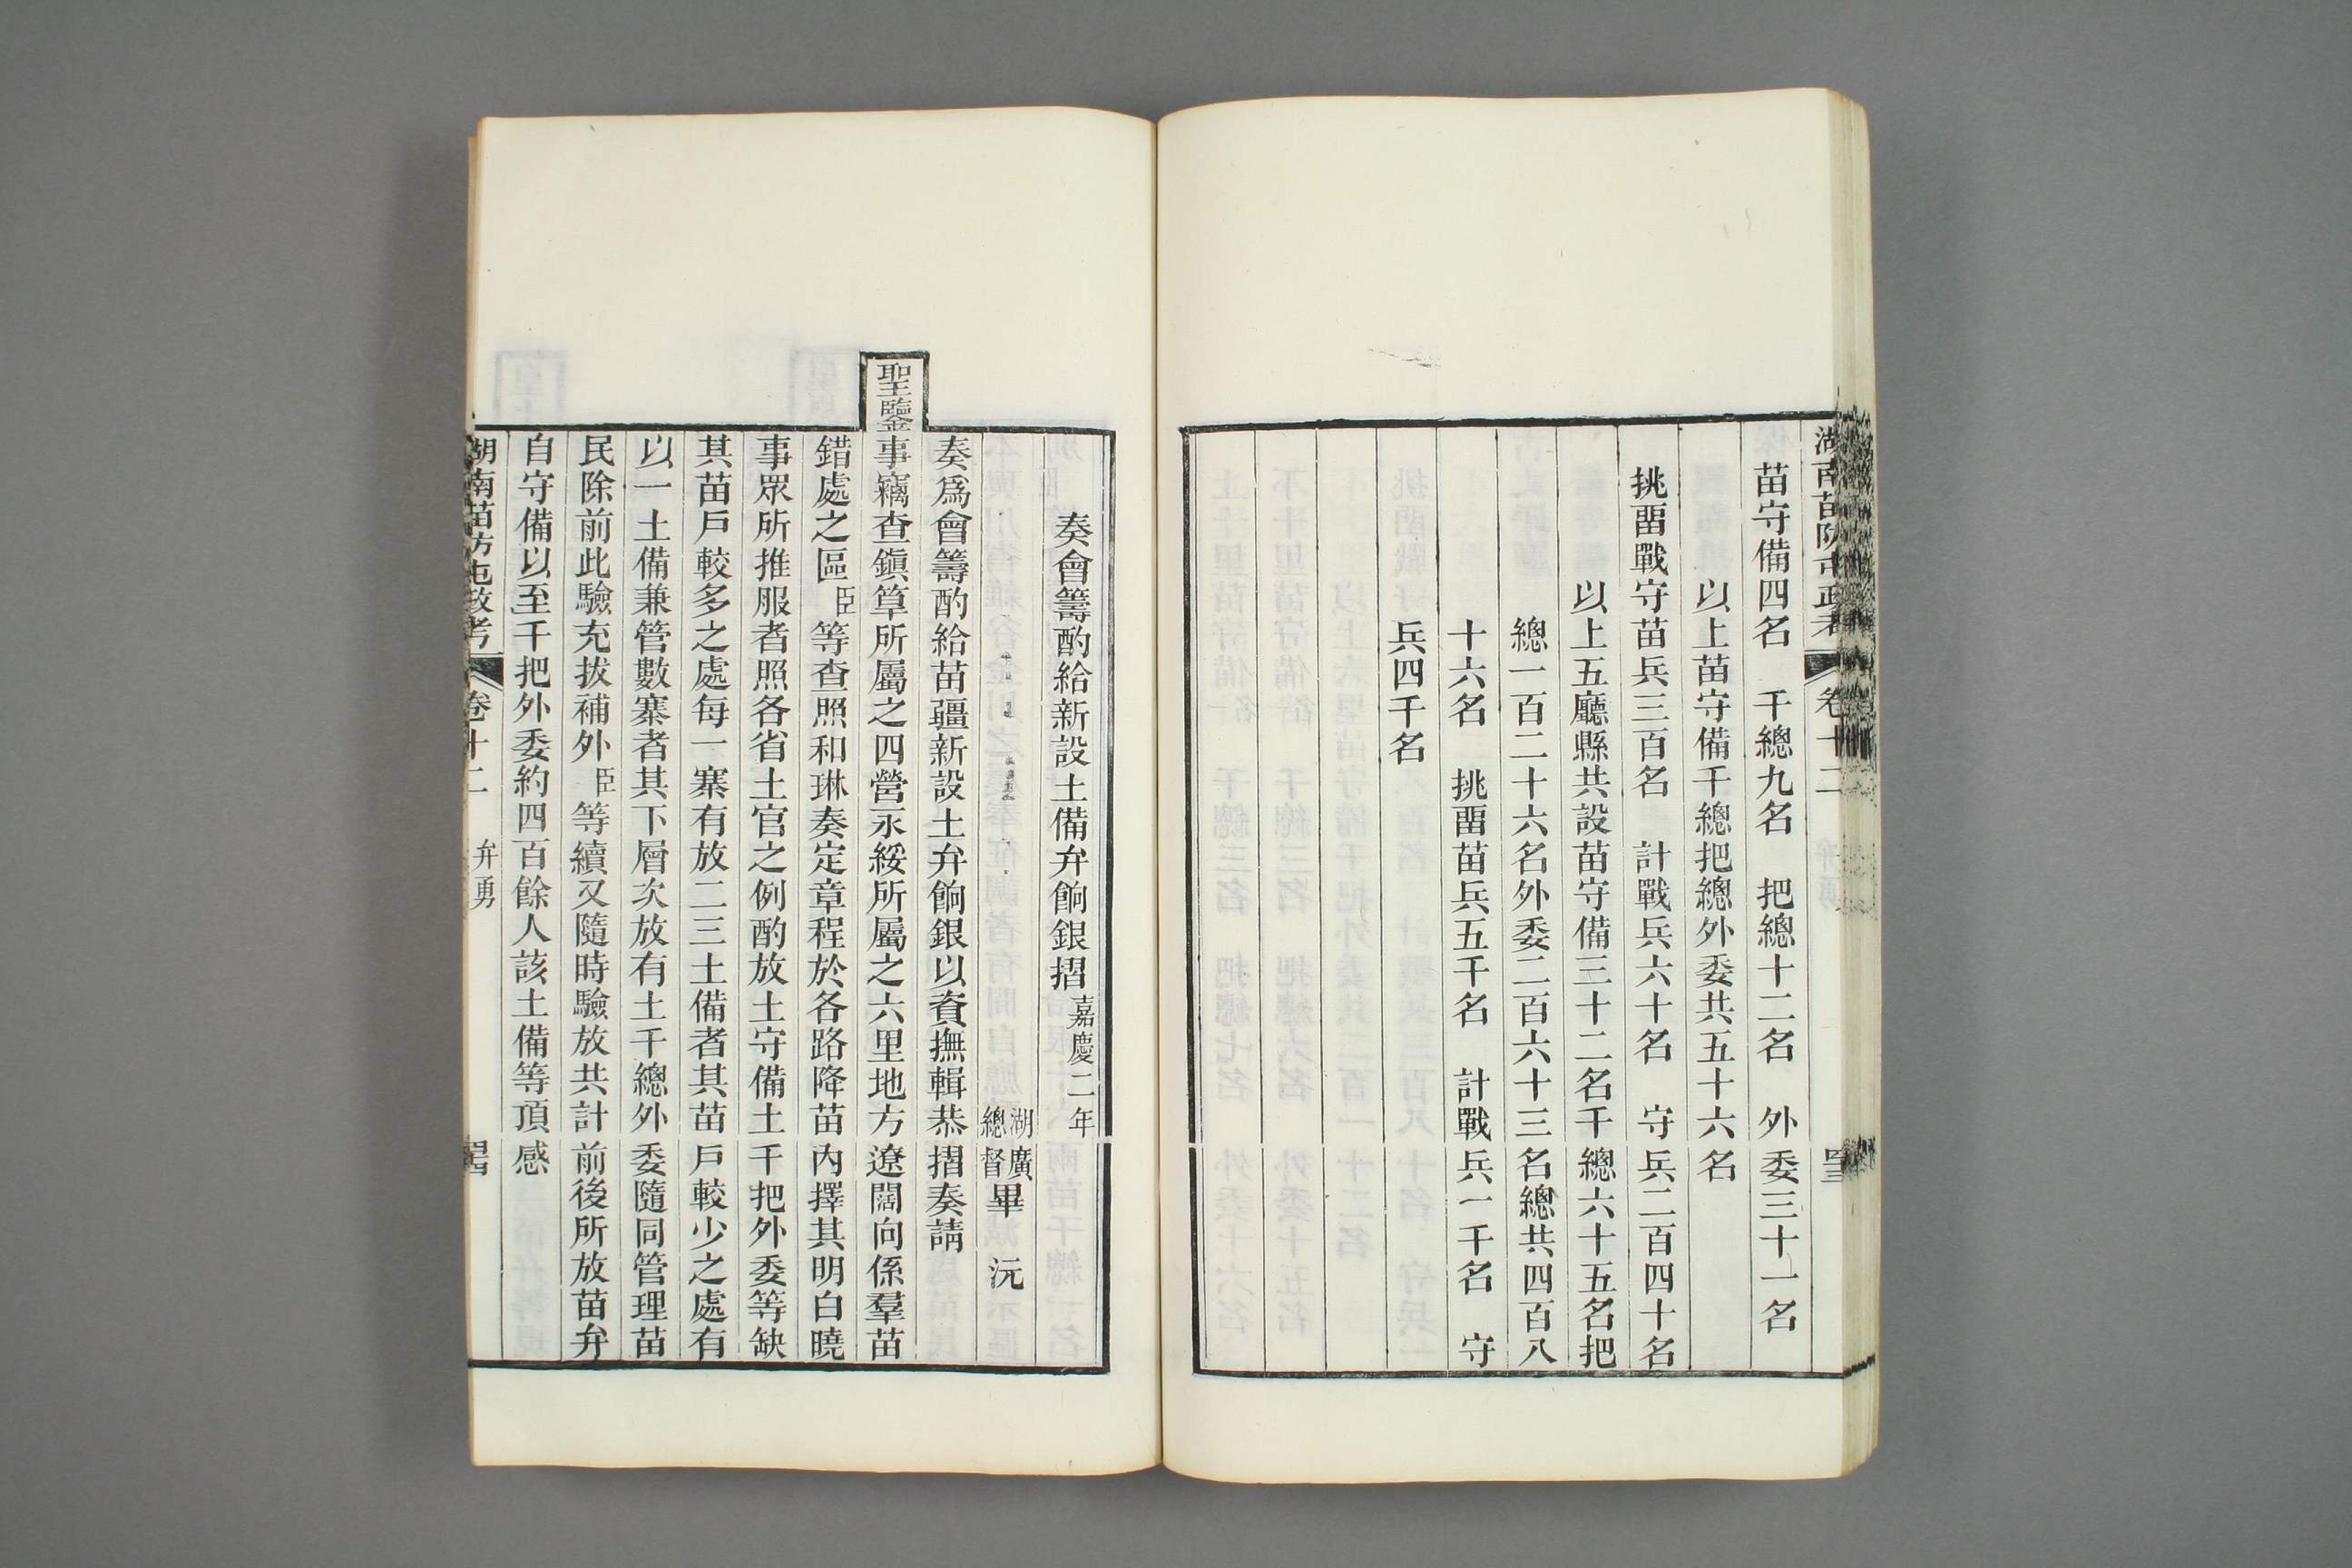 湖南苗防屯政考 卷十二
苗守備四名 千總九名 把總十二名 外委三十一名
以上苗守備千總把總外委共五十六名
挑畱戰守苗兵三百名 計戰兵六十名 守兵二百四十名
以上五廳縣共設苗守備三十二名千總六十五名把
總一百二十六名外委二百六十三名總共四百八
十六名 挑畱苗兵五千名 計戰兵一千名 守
兵四千名
奏會籌酌給新設土備弁餉銀摺 嘉慶二年
湖廣總督畢 沅
奏爲會籌酌給苗疆新設土弁餉銀以資撫輯恭摺奏請
聖鑒事竊查鎭筸所屬之四營永綏所屬之六里地方遼闊向係羣苗
錯處之區臣等查照和琳奏定章程於各路降苗內擇其明白曉
事眾所推服者照各省土官之例酌放土守備土千把外委等缺
其苗戶較多之處每一寨有放二三土備者其苗戶較少之處有
以一土備兼管數寨者其下層次放有土千總外委隨同管理苗
民除前此驗充拔補外臣等續又隨時驗放共計前後所放苗弁
自守備以至千把外委約四百餘人該土備等頂感
湖南苗防屯政考 卷十二 弁勇